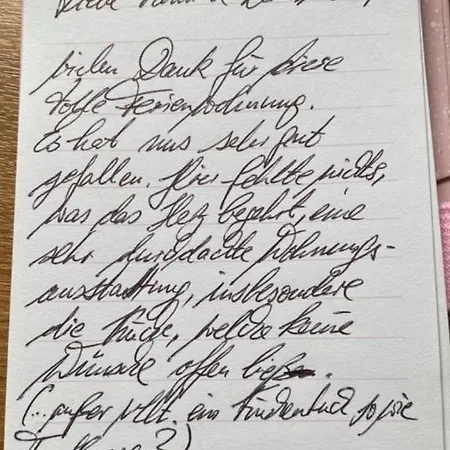 Liebe
vielen Dank für diese
tolle Ferienwohnung.
Es hat uns sehr gut
gefallen. Hier fehlte nichts,
was das Herz begehrt, eine
sehr durchdachte Wohnungs-
ausstattung, insbesondere
die Küche, welche keine
Wünsche offen ließ.
(... außer vllt. ein Küchentuch sowie
?)